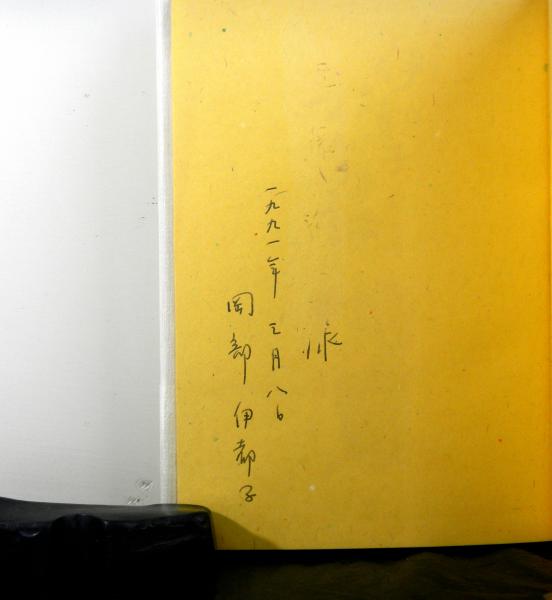 様
一九九一年 三月八日
岡部伊都子